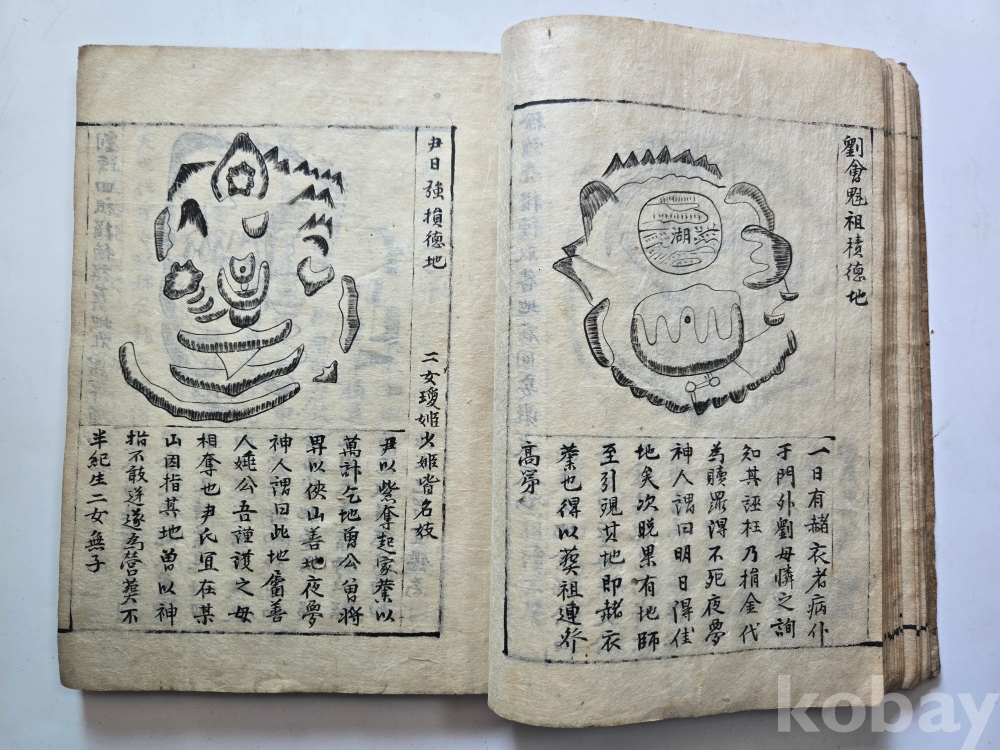 劉會魁祖積德地
湖
一日有赭衣者病仆
于門外劉母憐之詢
知其誣枉乃捐金代
為贖罪得不死夜夢
神人謂曰明日得佳
地矣次晚果有地師
至引現其地即赭衣
業也得以葬祖連
高第
尹日強損德地
二女瓊姬火姬皆名妓
尹以奪起家業以
萬計乞地曾公曾將
畀以俠山善地夜夢
神人謂曰此地屬善
人公吾謹護之毋
相奪也尹氏宜在某
山因指其地曾以神
指不敢逆遂為營葬不
半紀生二女無子
kobay